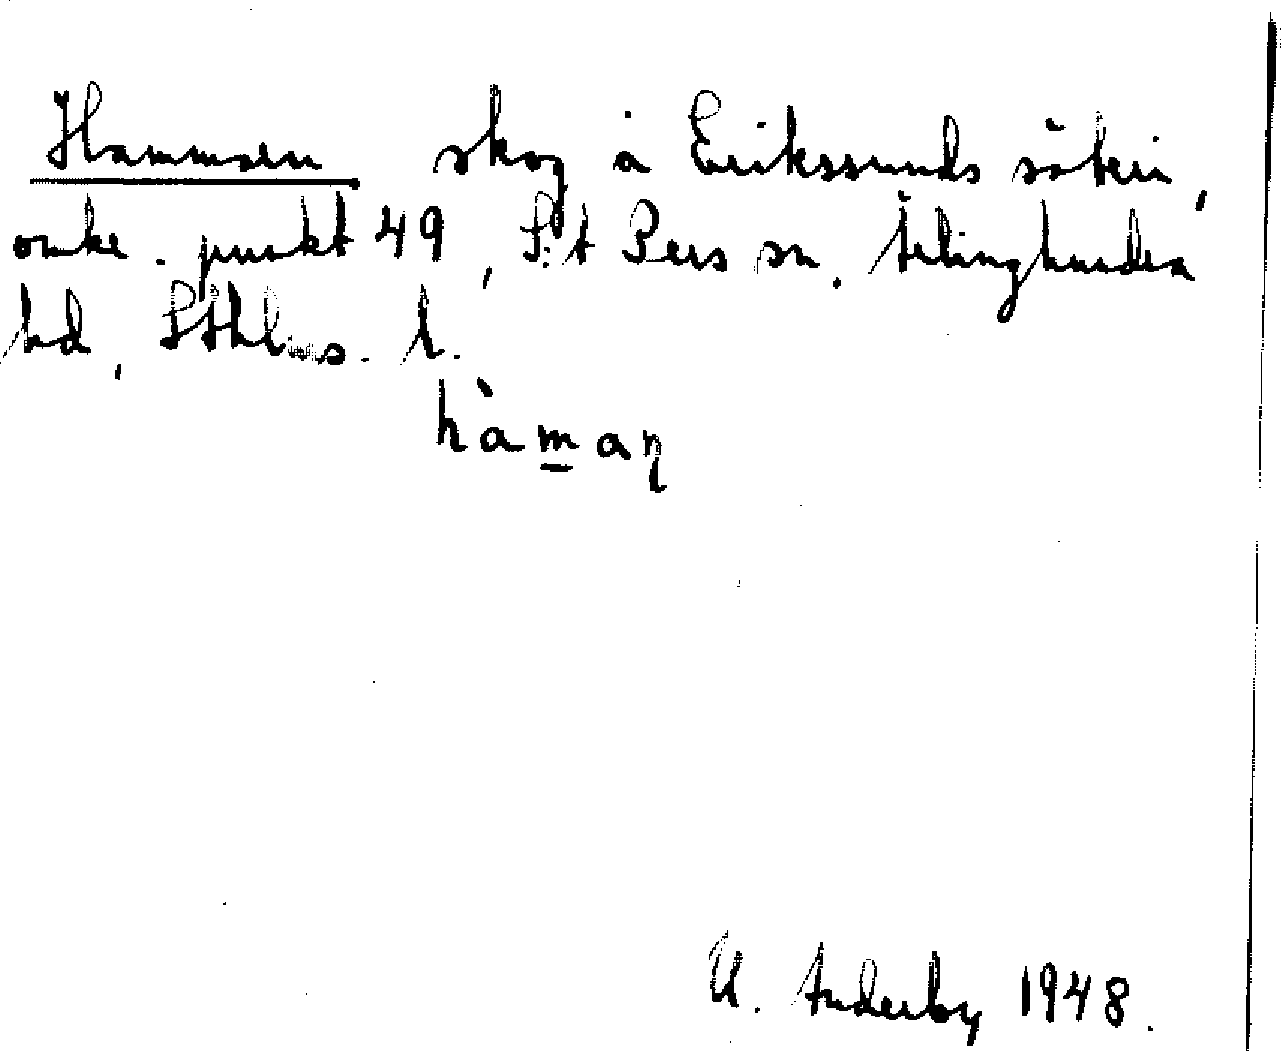 Hammaren skog å Erikssunds säteri,
omkr. punkt 49, S:t Pers sn. Ärlinghundra
hd, Sthlms. l.
hàmaɳ
U. Anderby 1948.